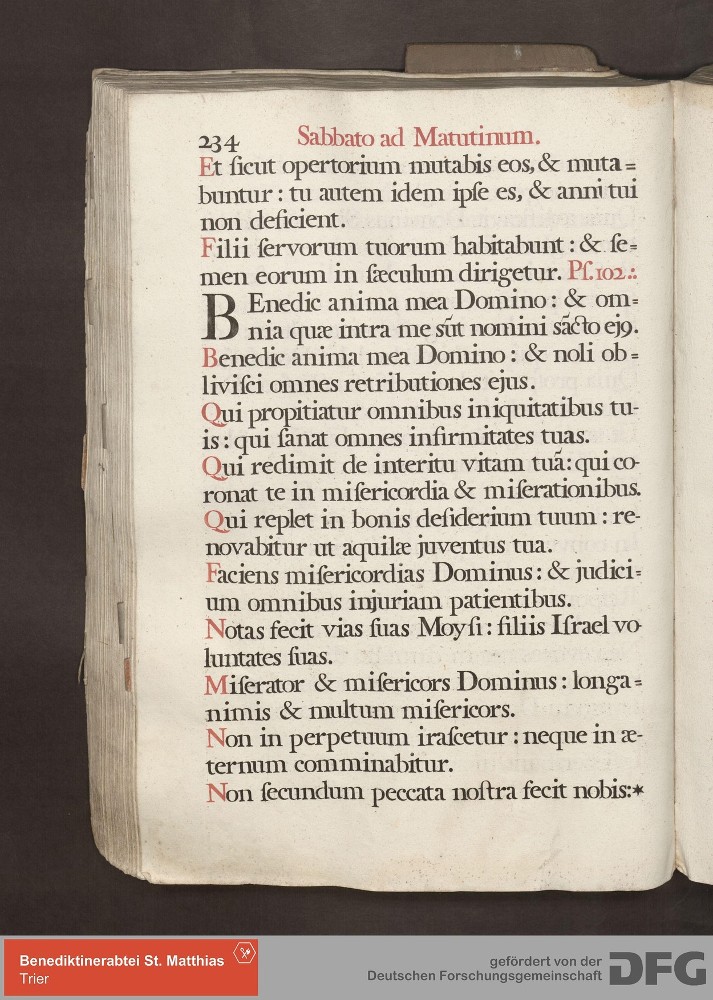 234 Sabbato ad Matutinum.
Et ſicut opertorium mutabis eos, & muta=
buntur : tu autem idem ipſe es, & anni tui
non deficient.
Filii ſervorum tuorum habitabunt : & ſe=
men eorum in ſæculum dirigetur. Pſ. 102.:.
BEnedic anima mea Domino : & om=
nia quæ intra me sũt nomini sãcto ej9.
Benedic anima mea Domino : & noli ob=
liviſci omnes retributiones ejus.
Qui propitiatur omnibus iniquitatibus tu-
is : qui ſanat omnes infirmitates tuas.
Qui redimit de interitu vitam tuã: qui co-
ronat te in miſericordia & miſerationibus.
Qui replet in bonis deſiderium tuum : re-
novabitur ut aquilæ juventus tua.
Faciens miſericordias Dominus : & judici=
um omnibus injuriam patientibus.
Notas fecit vias ſuas Moyſi : filiis Iſrael vo-
luntates ſuas.
Miſerator & miſericors Dominus : longa=
nimis & multum miſericors.
Non in perpetuum iraſcetur : neque in æ-
ternum comminabitur.
Non ſecundum peccata noſtra fecit nobis:*
Benediktinerabtei St. Matthias
Trier
gefördert von der
Deutschen Forschungsgemeinschaft DFG